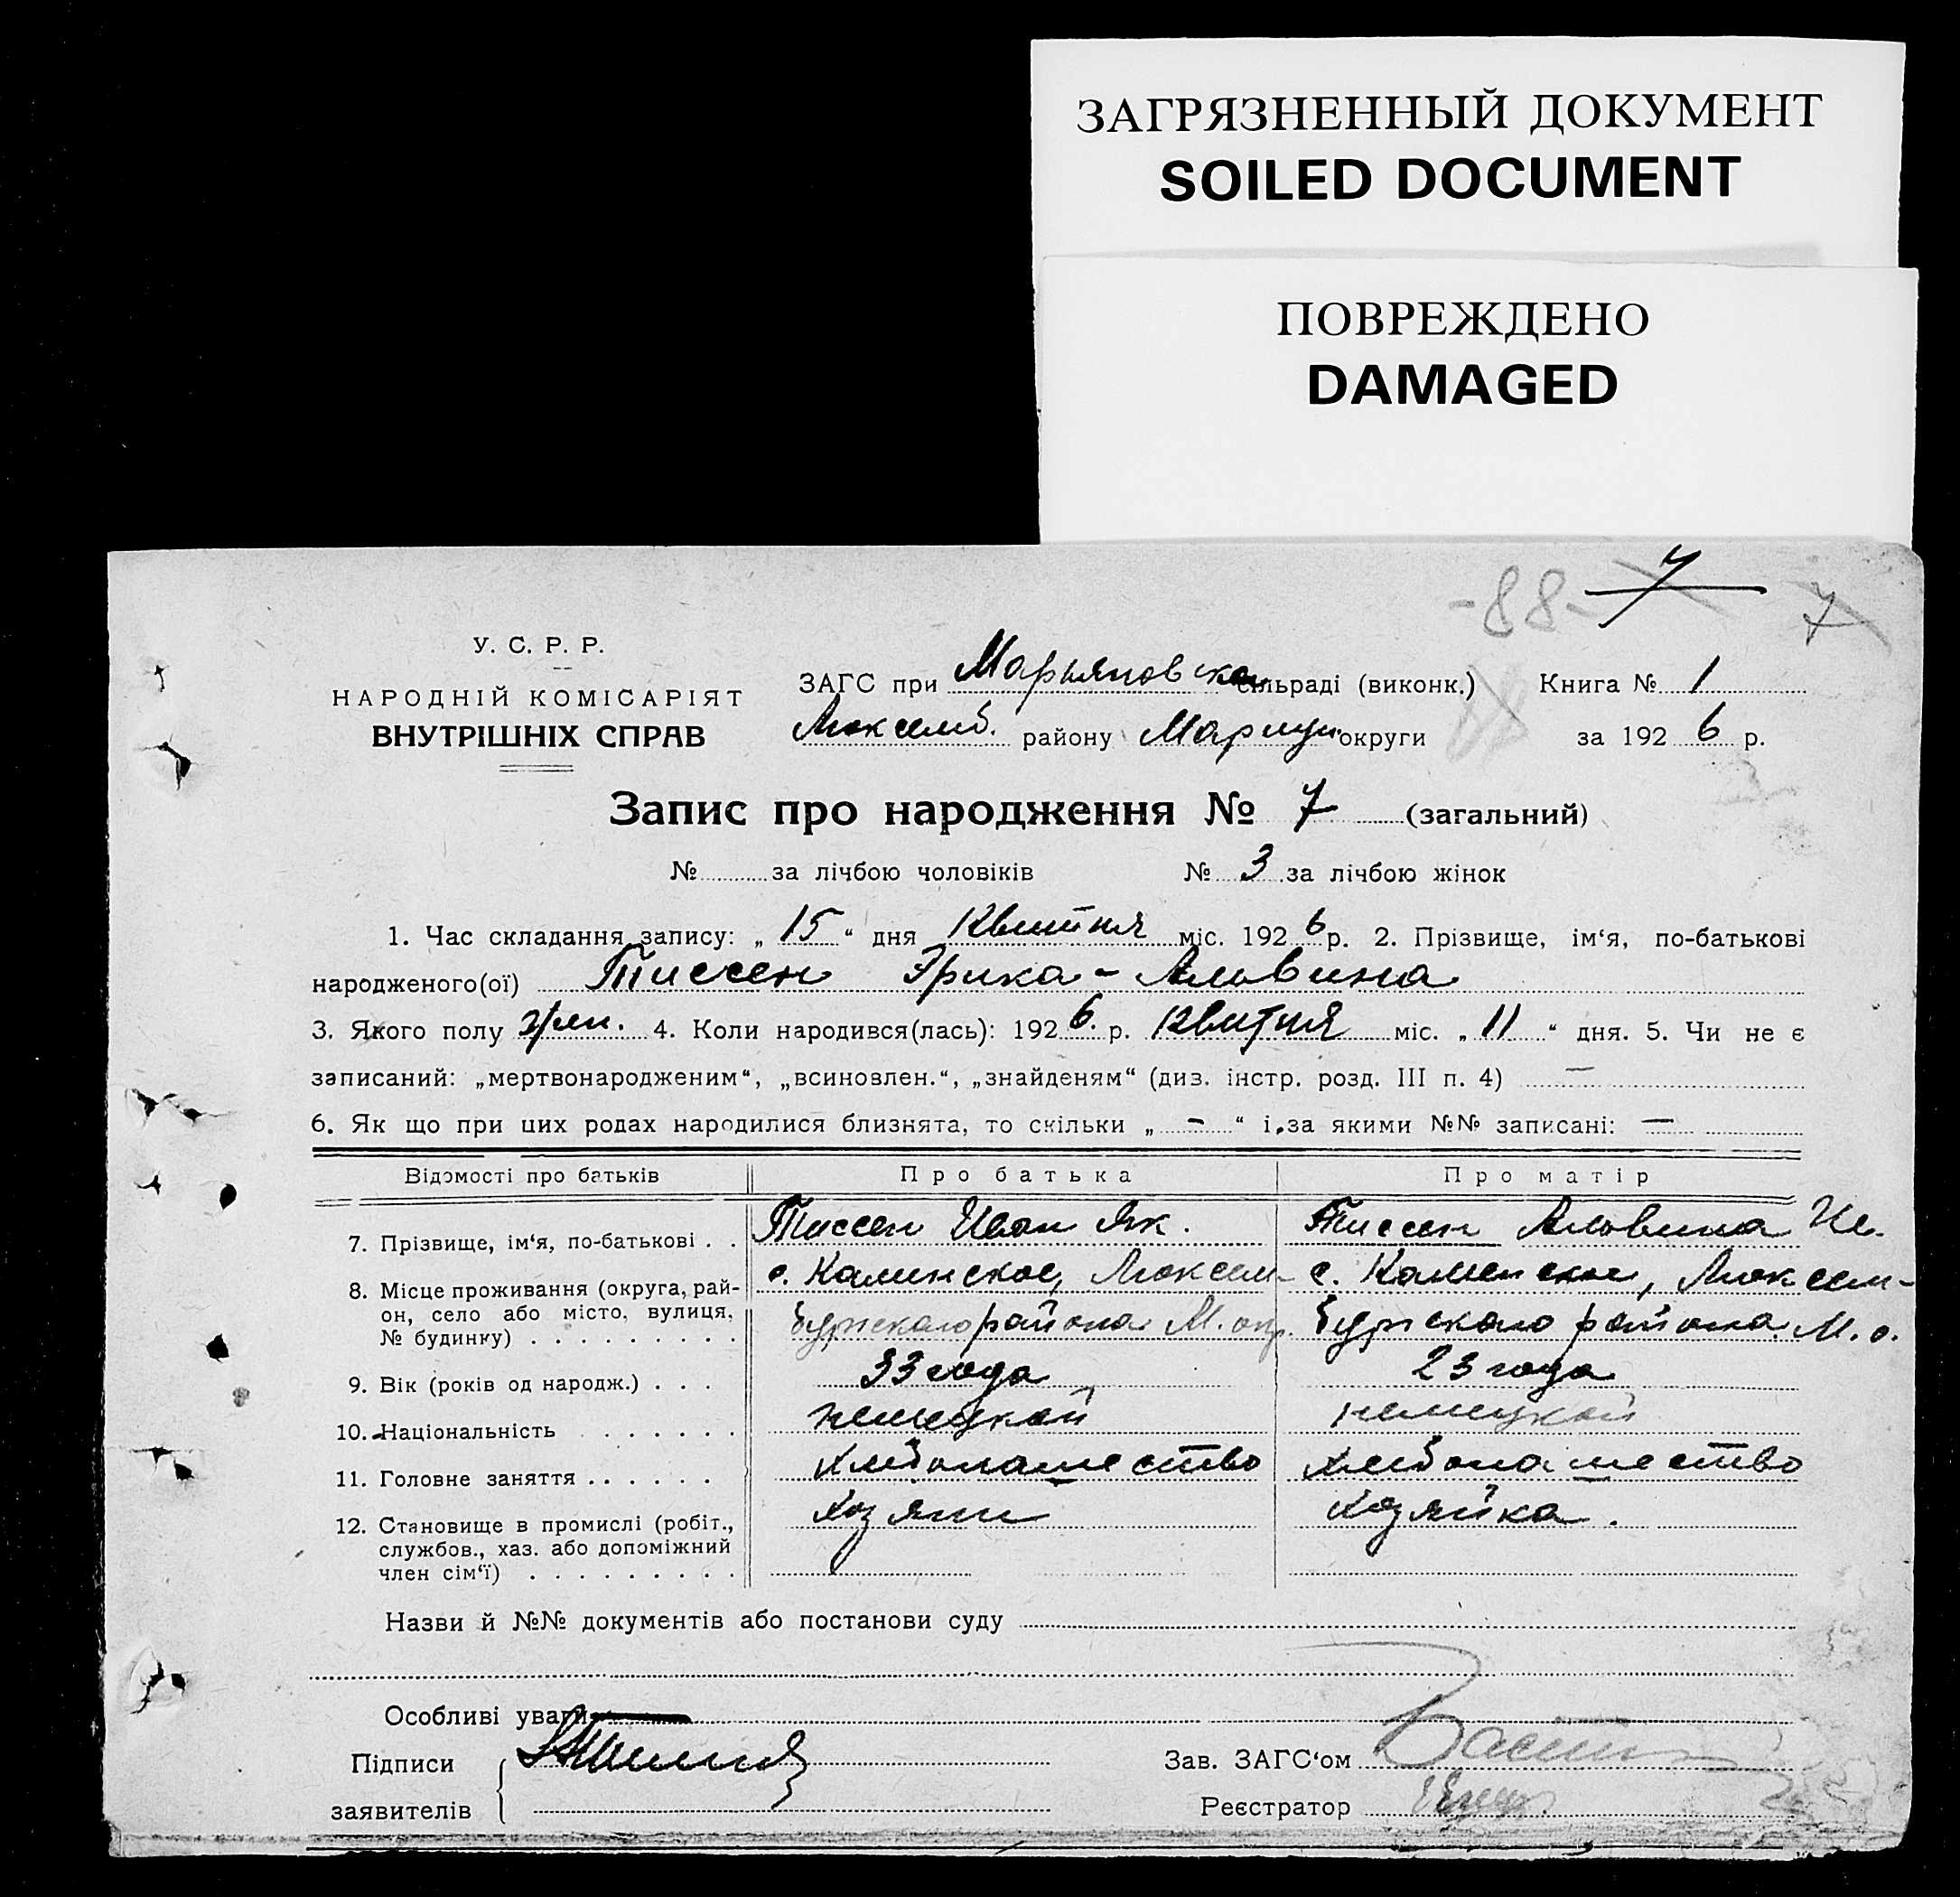 ЗАГРЯЗНЕННЫЙ ДОКУМЕНТ
SOILED DOCUMENT
ПОВРЕЖДЕНО
DAMAGED
-88- 7 7
У. С. Р. Р.
НАРОДНІЙ КОМІСАРІЯТ
ВНУТРІШНІХ СПРАВ
ЗАГС при Марьяновской сільраді (виконк.) Книга № 1
Люксемб. району Мариуп. округи за 1926 р.
Запис про народження № 7 (загальний)
№ за лічбою чоловіків № 3 за лічбою жінок
1. Час складання запису: „15“ дня Квитня міс. 1926 р. 2. Прізвище, ім‘я, по-батькові
народженого(ої) Тиссен Эрика - Альвина
3. Якого полу жен. 4. Коли народився(лась): 1926. р. Квитня міс. „11“ дня. 5. Чи не є
записаний: „мертвонародженим“, „всиновлен.“, „знайденям“ (диз. інстр. розд. III п. 4) —
6. Як що при цих родах народилися близнята, то скільки „ - “ і за якими №№ записані: —
Відомості про батьків Про батька Про матір
7. Прізвище, ім‘я, по-батькові . . Тиссен Иван Як. Тиссен Альвина Ив.
8. Місце проживання (округа, рай- с. Каминское, Люксем- с. Каменское, Люксем-
он, село або місто, вулиця, бургского района М. окр. бургского района М. о.
№ будинку) . . . . . . . . .
9. Вік (років од народж.) . . . 33 года 23 года
10. Національність . . . . . . . немецкой немецкой
11. Головне заняття . . . . . . хлебопашество хлебопашество
12. Становище в промислі (робіт., хозяин хозяйка.
службов., хаз. або допоміжний
член сім‘ї) . . . . . . . . .
Назви й №№ документів або постанови суду
Особливі уваги
Підписи
заявителів
Зав. ЗАГС‘ом
Реєстратор